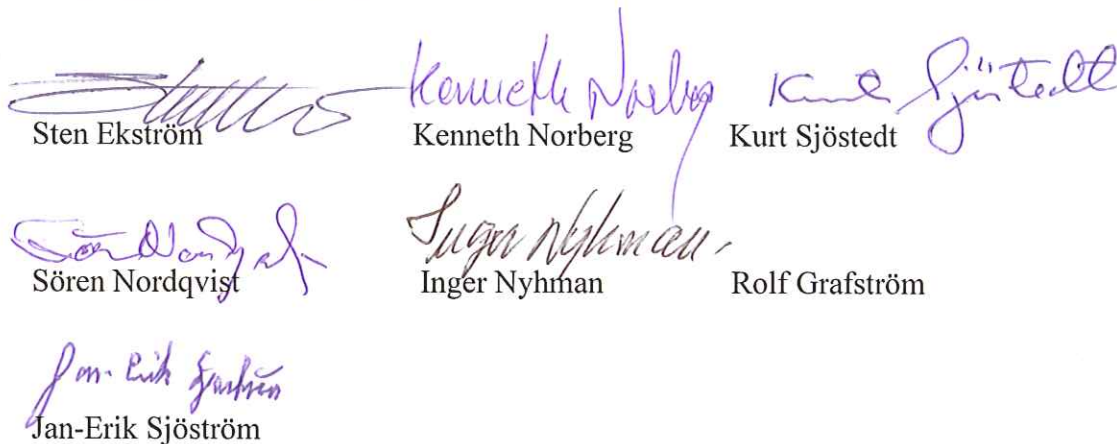 Kenneth Norberg Kurt Sjöstedt
Sten Ekström Kenneth Norberg Kurt Sjöstedt
Inger Nyhman
Sören Nordqvist Inger Nyhman Rolf Grafström
Jan-Erik Sjöström
Jan-Erik Sjöström